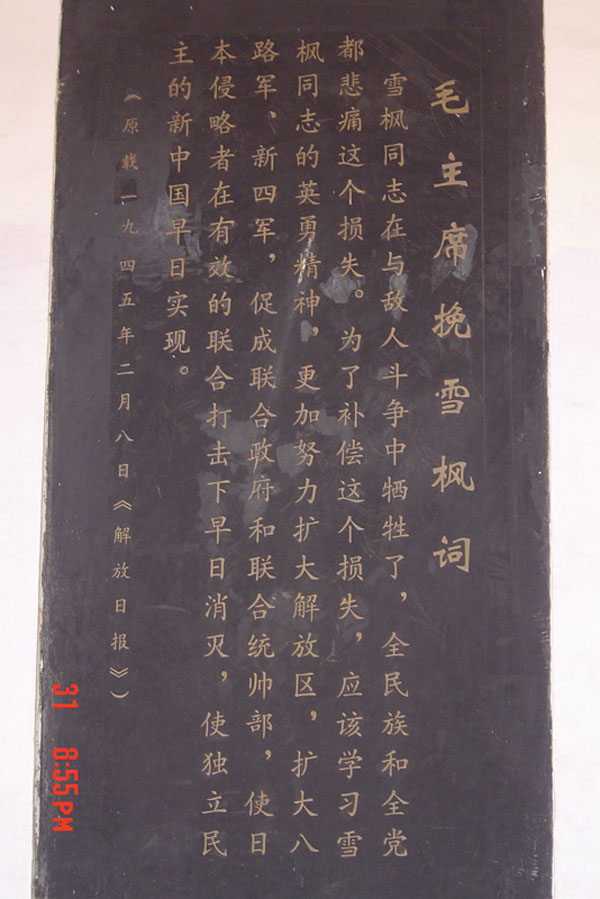 毛主席挽雪枫词
雪枫同志在与敌人斗争中牺牲了，全民族和全党
都悲痛这个损失。为了补偿这个损失，应该学习雪
枫同志的英勇精神，更加努力扩大解放区，扩大八
路军、新四军，促成联合政府和联合统帅部，使日
本侵略者在有效的联合打击下早日消灭，使独立民
主的新中国早日实现。
（原载一九四五年二月八日《解放日报》）
31 8:55PM